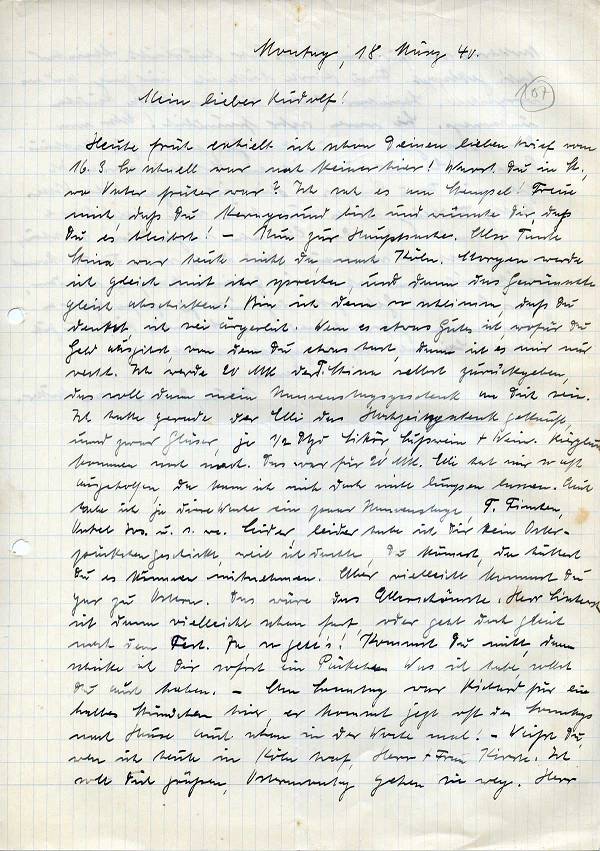 Montag, 18. März 40.
107
Mein lieber Rudolf!
Heute früh erhielt ich schon Deinen lieben Brief vom
16.3. So schnell war noch keiner hier! Warst Du in St.,
wo Vater früher war? Ich sah es am Stempel! Freue
mich, daß Du kerngesund bist und wünsche Dir, daß
Du es bleibst! – Nun zur Hauptsache. Also Tante
Stina war heute nicht da, nach Köln. Morgen werde
ich gleich mit ihr sprechen, und dann das Gewünschte
gleich abschicken! Bin ich denn so schlimm, daß Du
denkst, ich sei ärgerlich. Wenn es etwas Gutes ist, wofür Du
Geld ausgibst, von dem Du etwas hast, dann ist es mir nur
recht. Ich werde 20 MK. der T. Stina selbst zurückgeben,
das soll dann mein Namenstagsgeschenk an Dich sein.
Ich habe gerade der Elli das Hochzeitsgeschenk gekauft,
und zwar Gläser, je 1/2 Dtzd Likör, Südwein + Wein.
kommen noch nach. Das war für 20 MK. Elli hat mir so oft
ausgeholfen, da kann ich mich doch nicht lumpen lassen. Auch
habe ich ja diese Woche ein paar Namenstage, T.
Onkel Jos. u. s. w. Leider, leider habe ich Dir kein Oster-
päckchen geschickt, weil ich dachte, Du kämest, da hättest
Du es können mitnehmen. Aber vielleicht kommst Du
gar zu Ostern. Das wäre das Allerschönste. Herr
ist dann vielleicht schon fort oder geht doch gleich
nach dem Fest. Ja so geht's! Kommst Du nicht, dann
schicke ich Dir sofort ein Päckchen. Was ich habe, sollst
Du auch haben. – Am Sonntag war Richard für ein
halbes Stündchen hier, er kommt jetzt oft des Sonntags
nach Hause, auch schon in der Woche mal. – Weißt Du,
wen ich heute in Köln traf, Herr + Frau. Ich
soll Dich grüßen, Ostermontag gehen sie weg. Herr